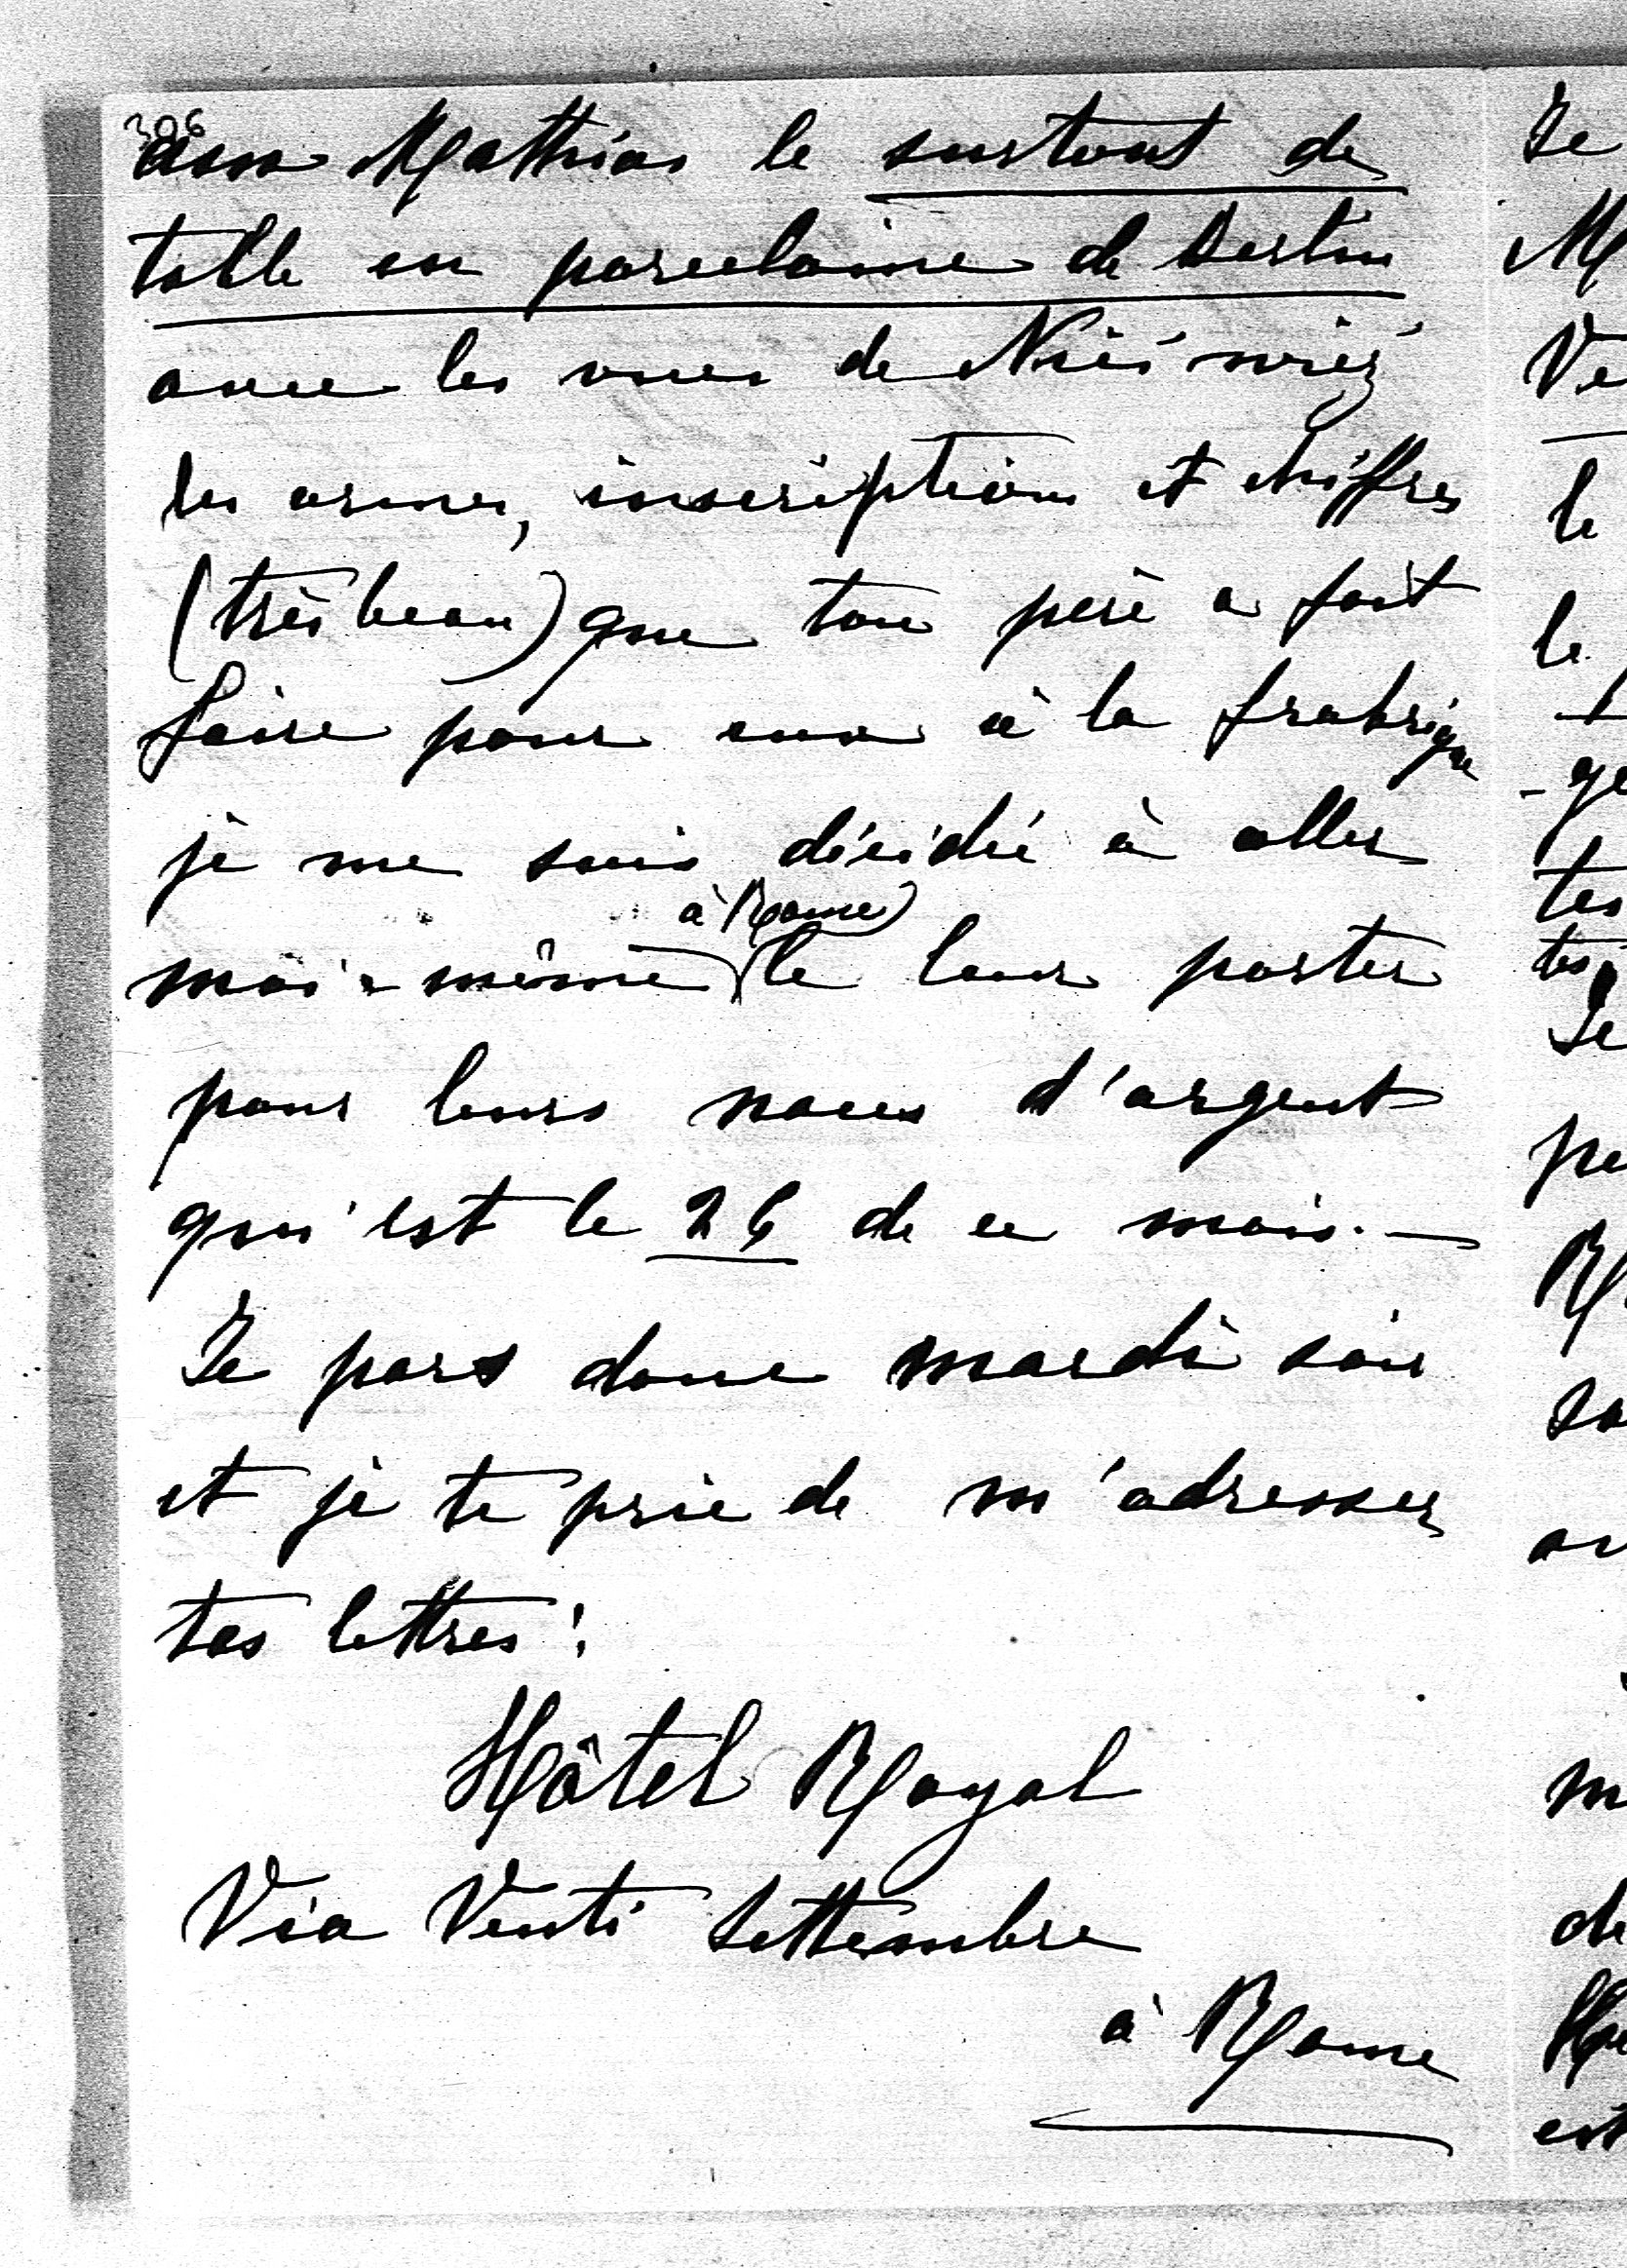 306
aux Mathias le surtout de
table en porcelaine de Berlin
avec les vues de Nieśwież
les armes, inscriptions et chiffres
(très beau) que ton père a fait
faire pour eux à la frabrique
je me suis décidé à aller
à Rome
moi-même le leur porter
pour leurs noces d'argent
qui est le 26 de ce mois. —
Je pars donc mardi soir
et je te prie de m'adresser
tes lettres :
Hôtel Royal
Via Venti Settembre
à Rome
Je
le
le
tes
tes
Je